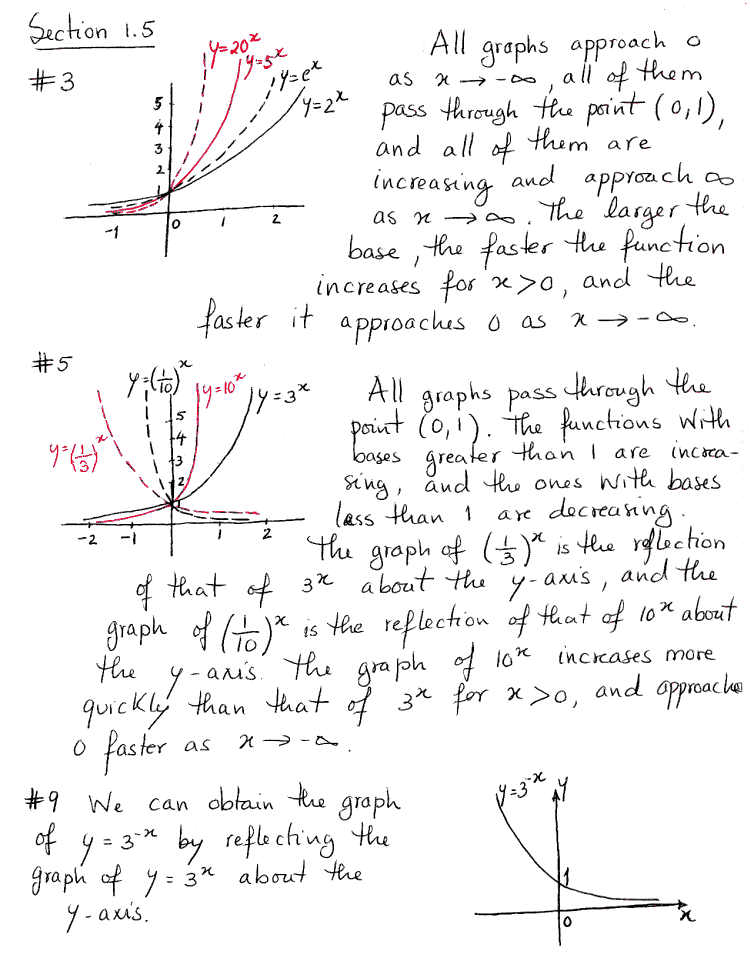 Section 1.5
#3
y=20^x
y=5^x
y=e^x
y=2^x
5
4
3
2
1
-1
0
1
2
All graphs approach 0
as x → -∞, all of them
pass through the point (0,1),
and all of them are
increasing and approach ∞
as x → ∞. The larger the
base, the faster the function
increases for x>0, and the
faster it approaches 0 as x → -∞.
#5
y=(1/10)^x
y=10^x
y=3^x
y=(1/3)^x
5
4
3
2
1
-2
-1
1
2
All graphs pass through the
point (0,1). The functions with
bases greater than 1 are increa-
sing, and the ones with bases
less than 1 are decreasing.
The graph of (1/3)^x is the reflection
of that of 3^x about the y-axis, and the
graph of (1/10)^x is the reflection of that of 10^x about
the y-axis. The graph of 10^x increases more
quickly than that of 3^x for x>0, and approache
0 faster as x → -∞.
#9 We can obtain the graph
of y = 3^-x by reflecting the
graph of y = 3^x about the
y-axis.
y=3^-x
y
1
0
x